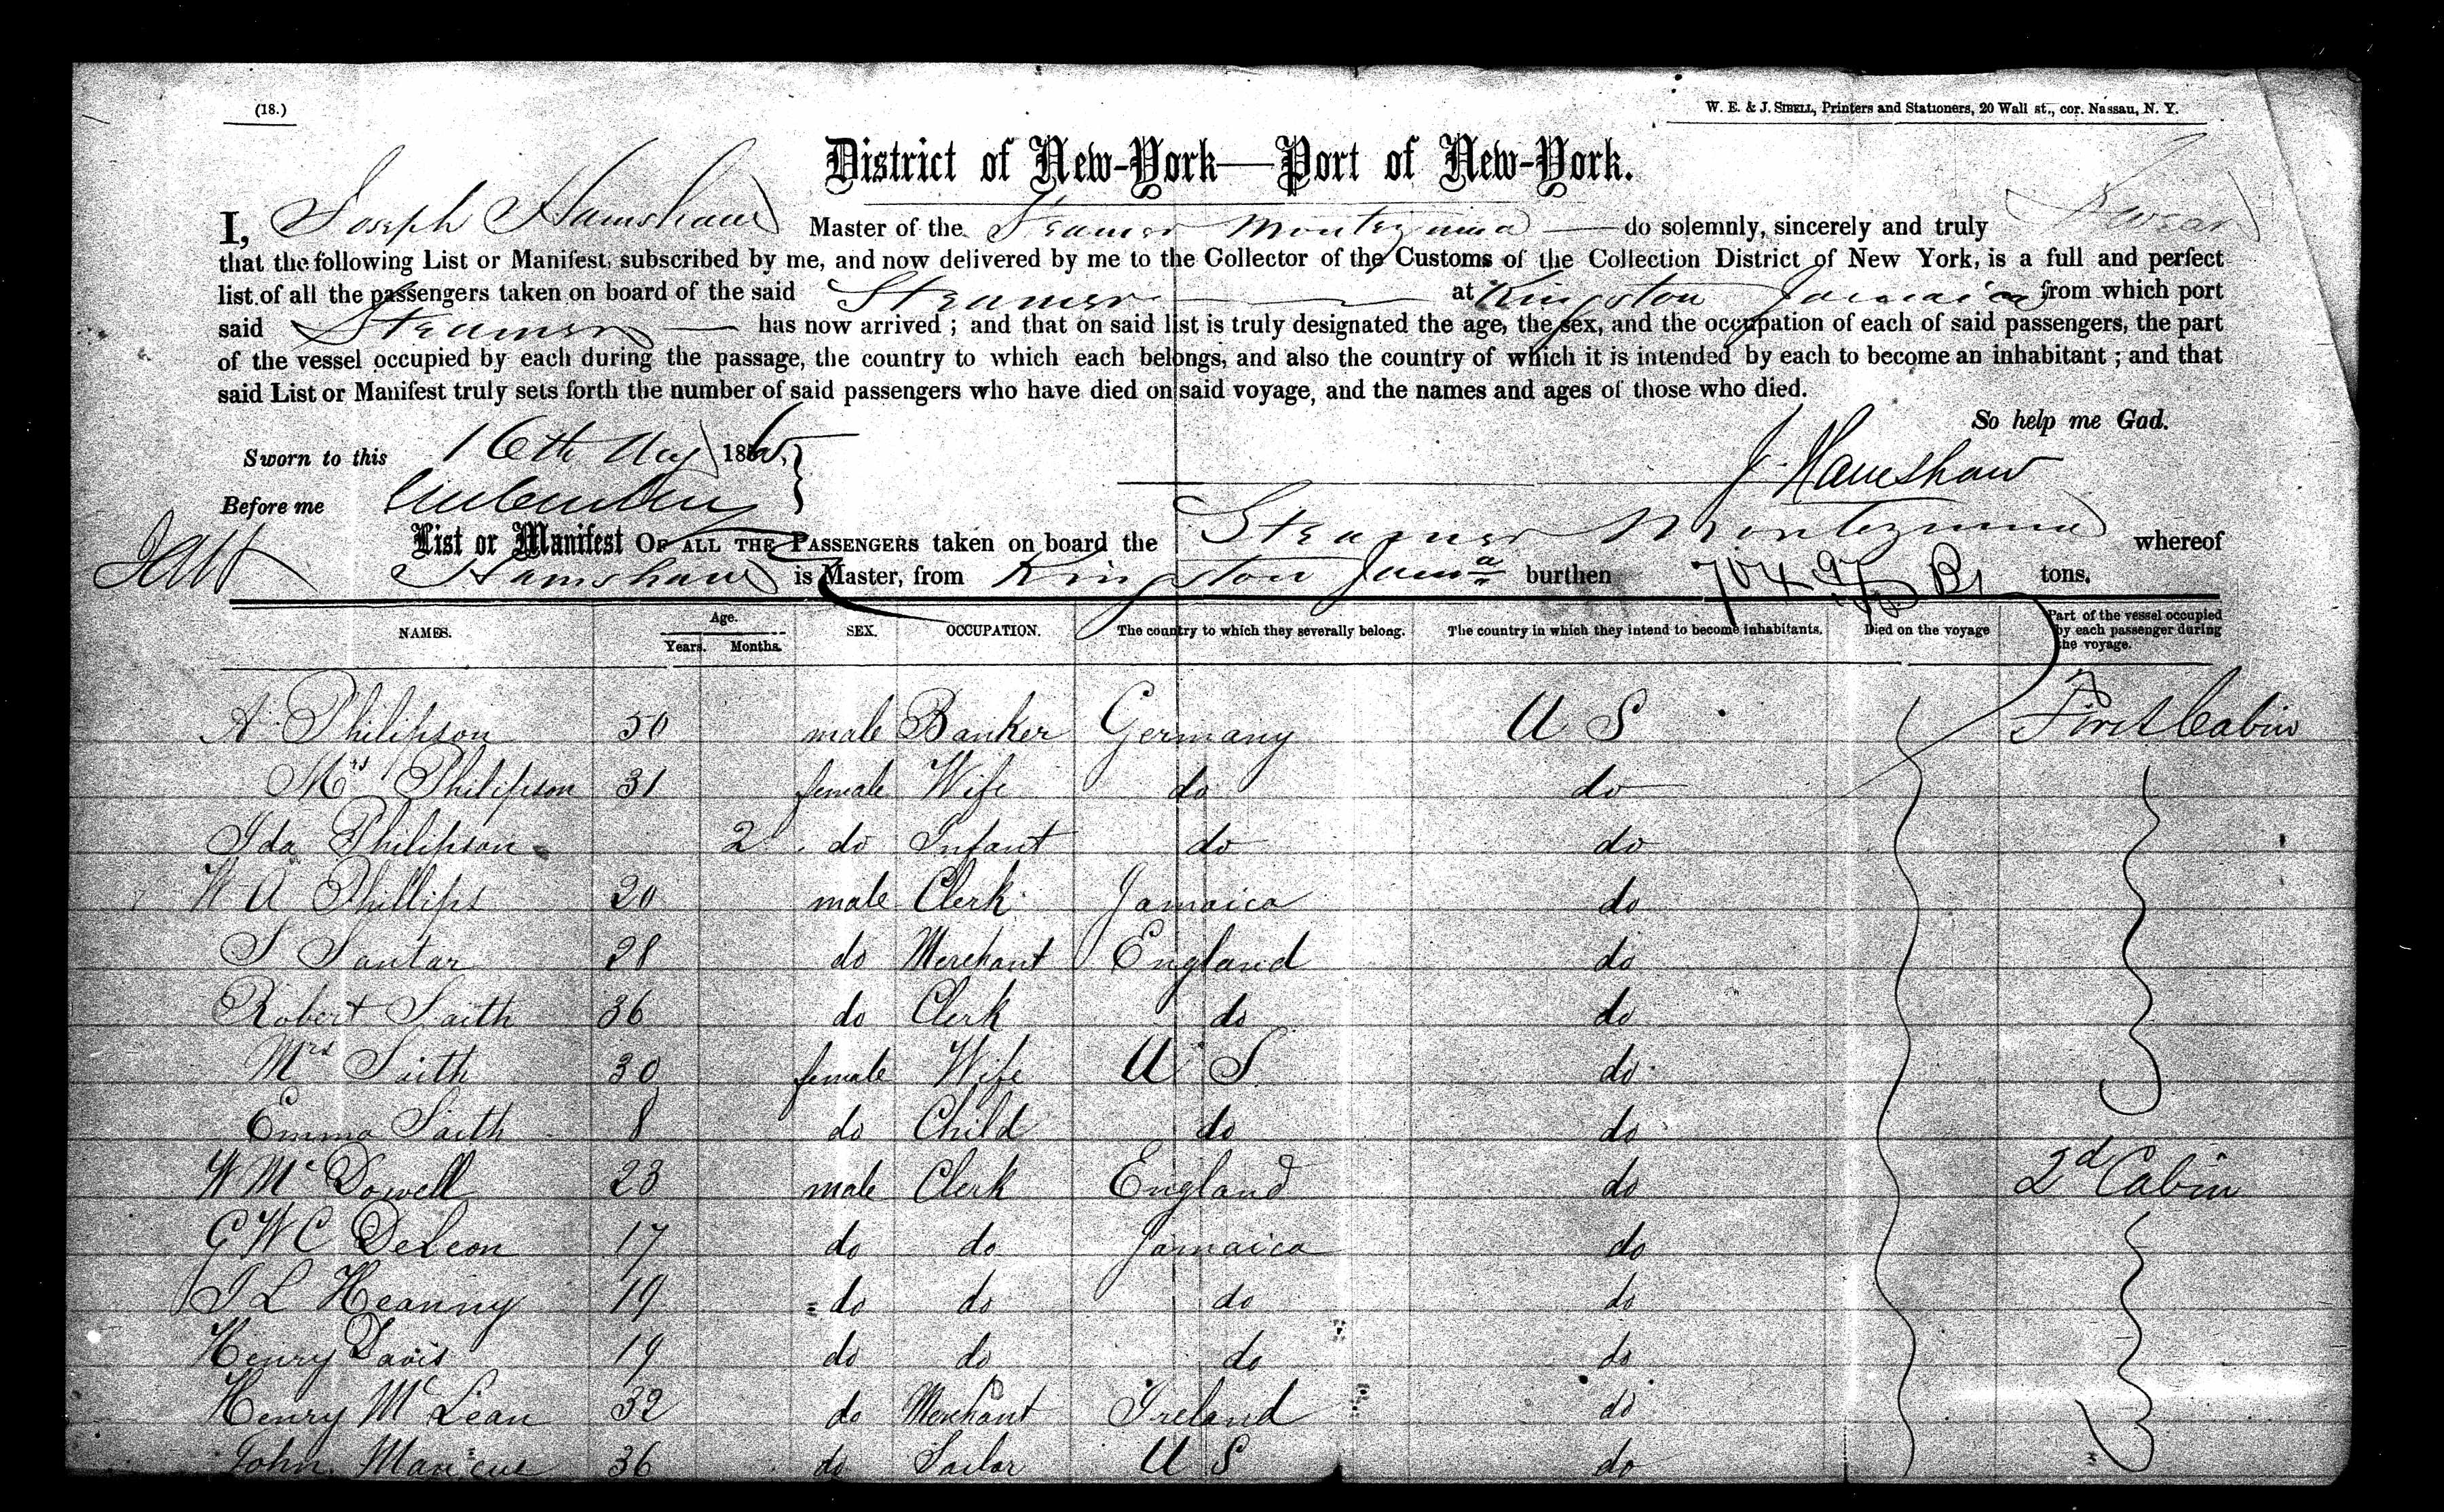 (18.)
W. E. & J. SIBELL, Printers and Stationers, 20 Wall st., cor. Nassau, N. Y.
District of New-York—Port of New-York.
I, Joseph Hamshaw Master of the Steamer Montezuma do solemnly, sincerely and truly Swear
that the following List or Manifest, subscribed by me, and now delivered by me to the Collector of the Customs of the Collection District of New York, is a full and perfect
list of all the passengers taken on board of the said Steamer at Kingston Jamaica from which port
said Steamer has now arrived ; and that on said list is truly designated the age, the sex, and the occupation of each of said passengers, the part
of the vessel occupied by each during the passage, the country to which each belongs, and also the country of which it is intended by each to become an inhabitant ; and that
said List or Manifest truly sets forth the number of said passengers who have died on said voyage, and the names and ages of those who died.
So help me God.
Sworn to this 16th 186
J. Hamshaw
Before me
List or Manifest OF ALL THE PASSENGERS taken on board the Steamer Montezuma whereof
Hamshaw is Master, from Kingston Jamᵃ burthen 704 tons.
NAMES. Age. Years. Months. SEX. OCCUPATION. The country to which they severally belong. The country in which they intend to become inhabitants. Died on the voyage Part of the vessel occupied by each passenger during the voyage.
A Philipson 50 male Banker Germany U S First Cabin
Mrs Philipson 31 female Wife do do
Ida Philipson 2 do Infant do do
W A Phillips 20 male Clerk Jamaica do
S Santar 28 do Merchant England do
Robert Saith 36 do Clerk do do
Mrs Saith 30 female Wife U S do
Emma Saith 8 do Child do do
W McDowell 23 male Clerk England do 2d Cabin
G W C DeLeon 17 do do Jamaica do
I L Heanny 19 do do do do
Henry Davis 19 do do do do
Henry McLean 32 do Merchant Ireland do
John Marcus 36 do Sailor U S do